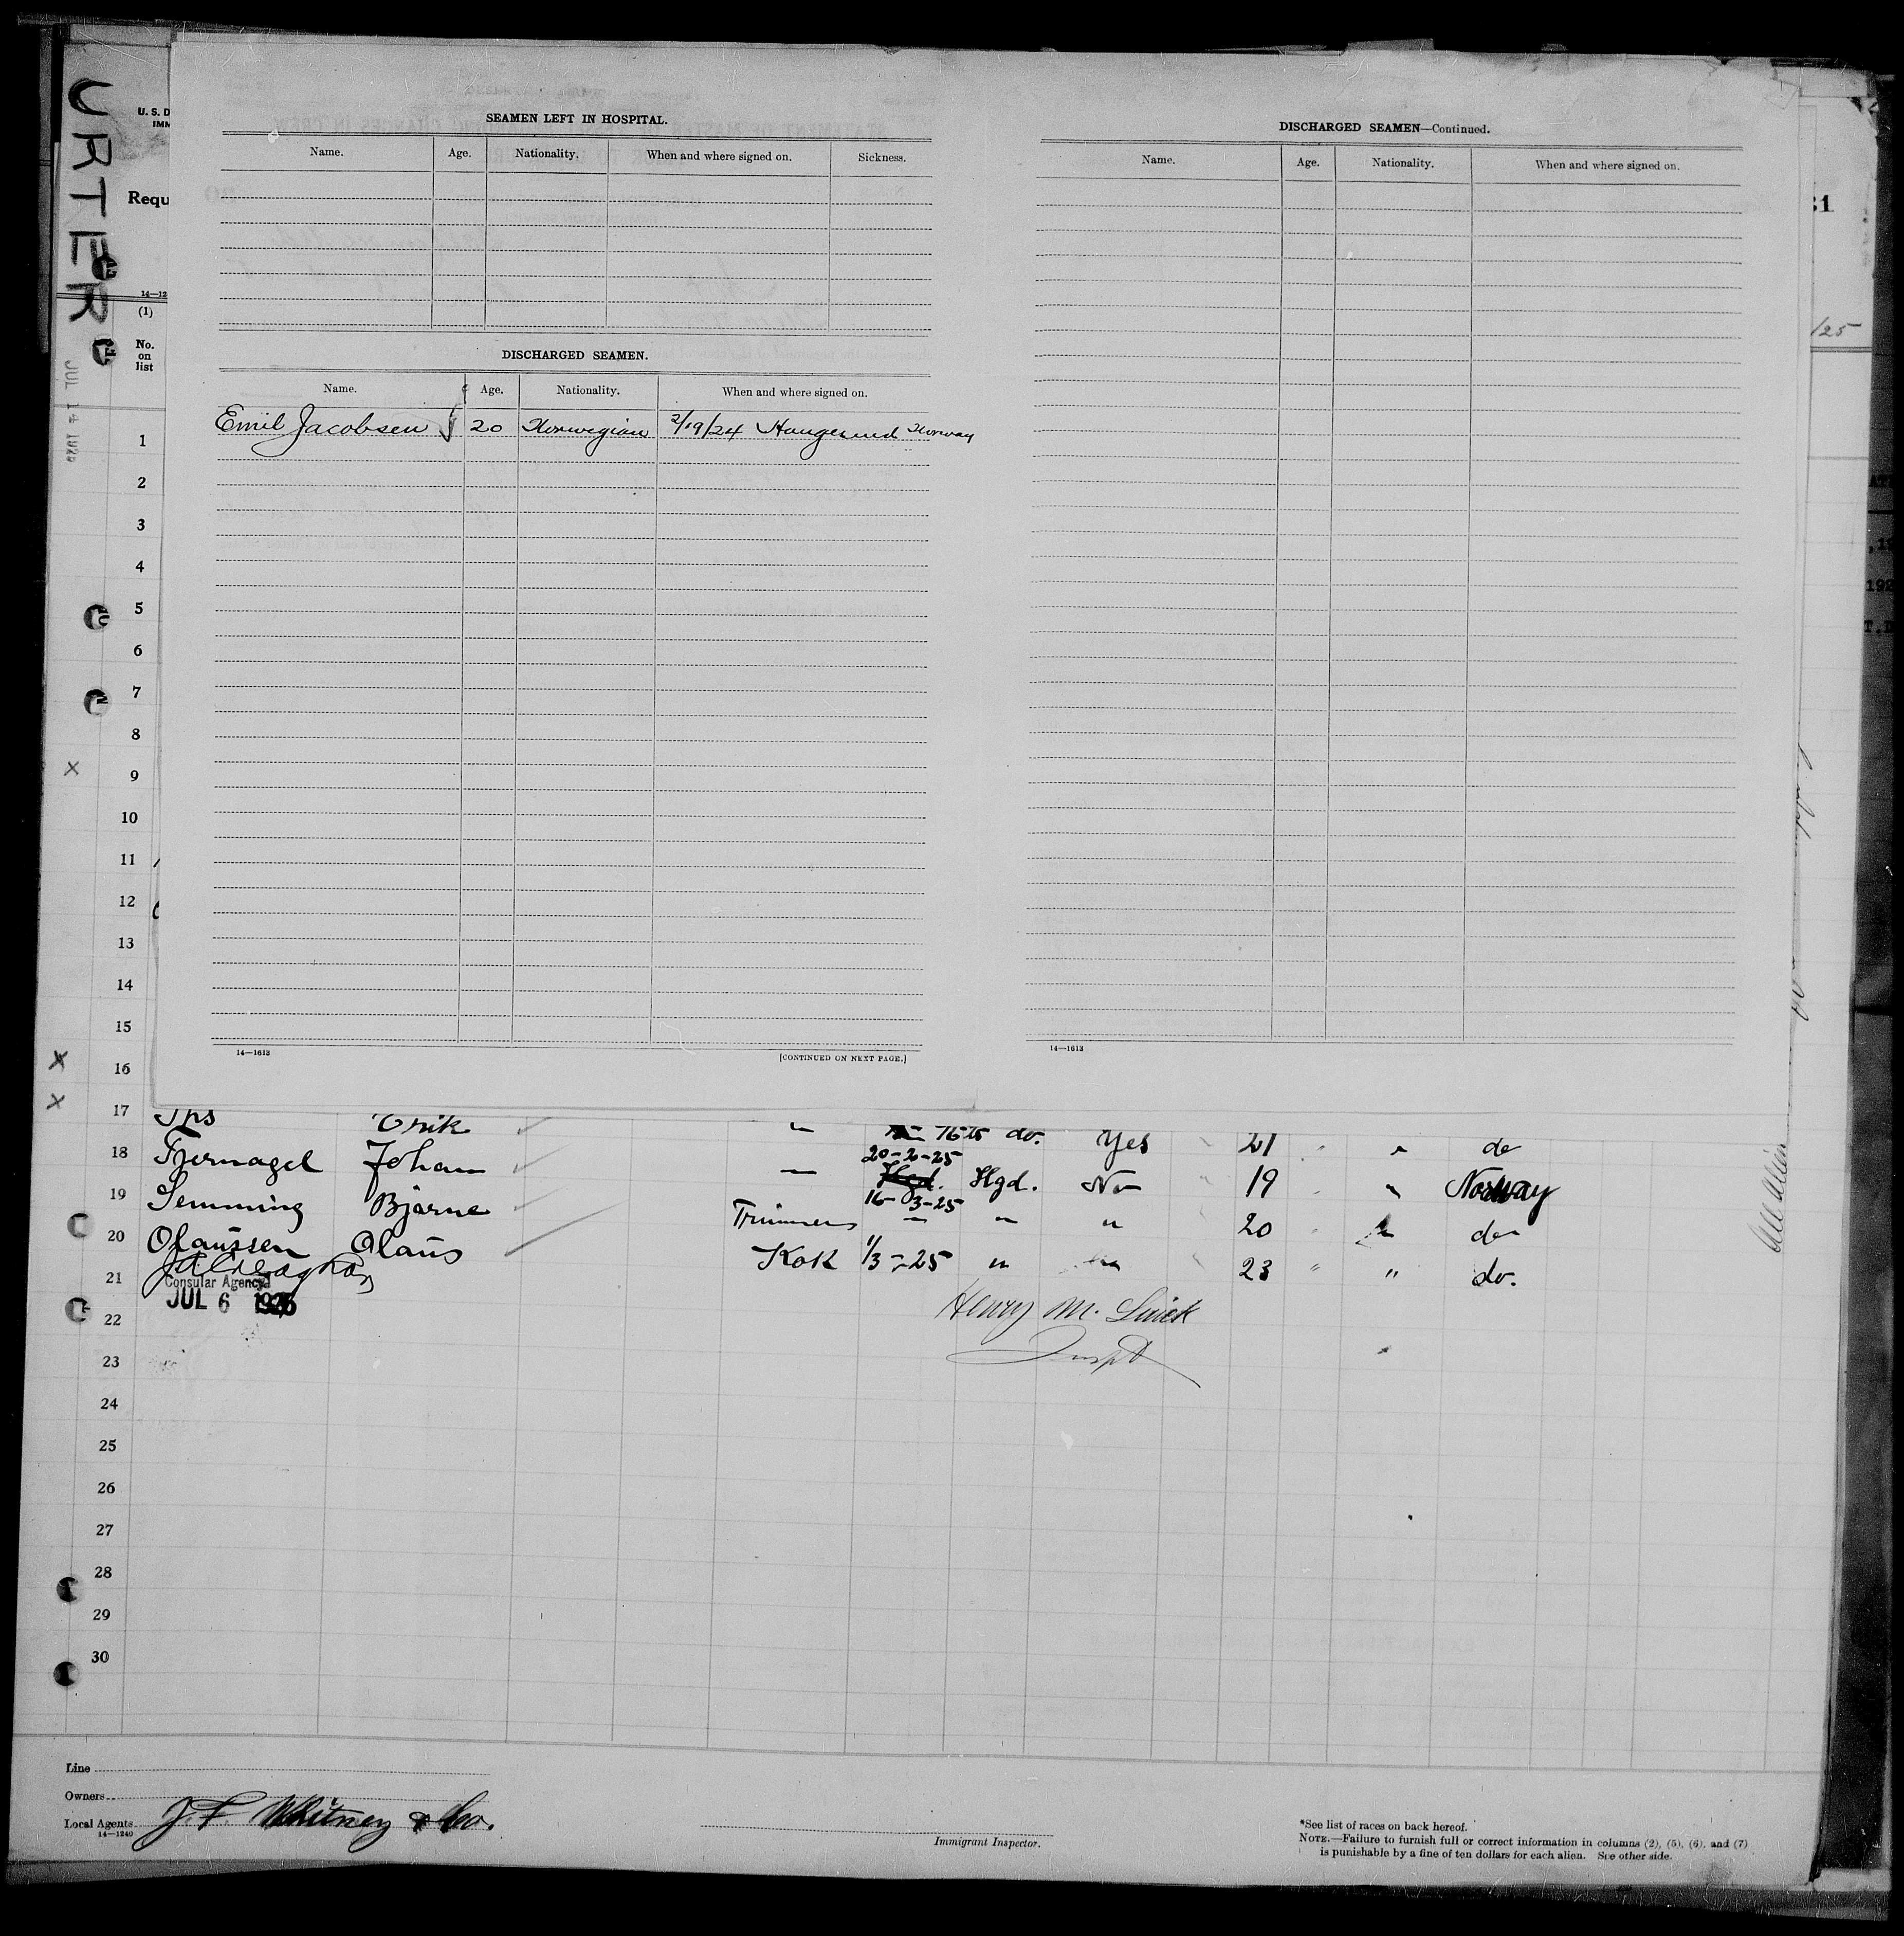 URTER
JUL 14 1925
U. S. D
IMM
Requ
14—12
(1)
No.
on
list
SEAMEN LEFT IN HOSPITAL.
Name. Age. Nationality. When and where signed on. Sickness.
DISCHARGED SEAMEN.
Name. Age. Nationality. When and where signed on.
Emil Jacobsen 20 Norwegian 2/19/24 Haugesund Norway
14—1613 [CONTINUED ON NEXT PAGE.]
DISCHARGED SEAMEN—Continued.
Name. Age. Nationality. When and where signed on.
14—1613
31
/25
1
2
3
4
5
6
7
8
X 9
10
11
12
13
14
15
X 16
X 17 Erik do. Yes 21 " do
18 Fjernagel Johan — 20-2-25 Hgd. No 19 " Norway
19 Semming Bjarne Trimmer 16-3-25 — " " 20 " do
20 Olaussen Olaus Kok 1/3-25 " " 23 " " do.
21
Consular Agency
JUL 6 1925
22
Henry M.
Inspt
23
24
25
26
27
28
29
30
Line
Owners
Local Agents J. F. Whitney & Co.
14—1240
Immigrant Inspector.
*See list of races on back hereof.
NOTE.—Failure to furnish full or correct information in columns (2), (5), (6), and (7)
is punishable by a fine of ten dollars for each alien. See other side.